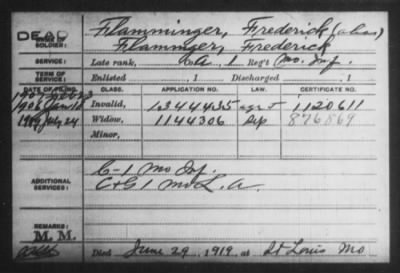 DEAD
NAME OF SOLDIER: Flamminger, Frederick (alias)
Flaminger, Frederick
SERVICE: Late rank, Co A, 1 Reg't Mo. Inf.
TERM OF SERVICE: Enlisted , 1 Discharged , 1
DATE OF FILING. CLASS. APPLICATION NO. LAW. CERTIFICATE NO.
Invalid, 1344435 1120611
1919 July 24 Widow, 1144306 876869
Minor,
ADDITIONAL SERVICES: C-1 Mo Inf.
C+G 1 Mo L. A.
REMARKS:
M. M.
Died June 29, 1919, at St Louis Mo